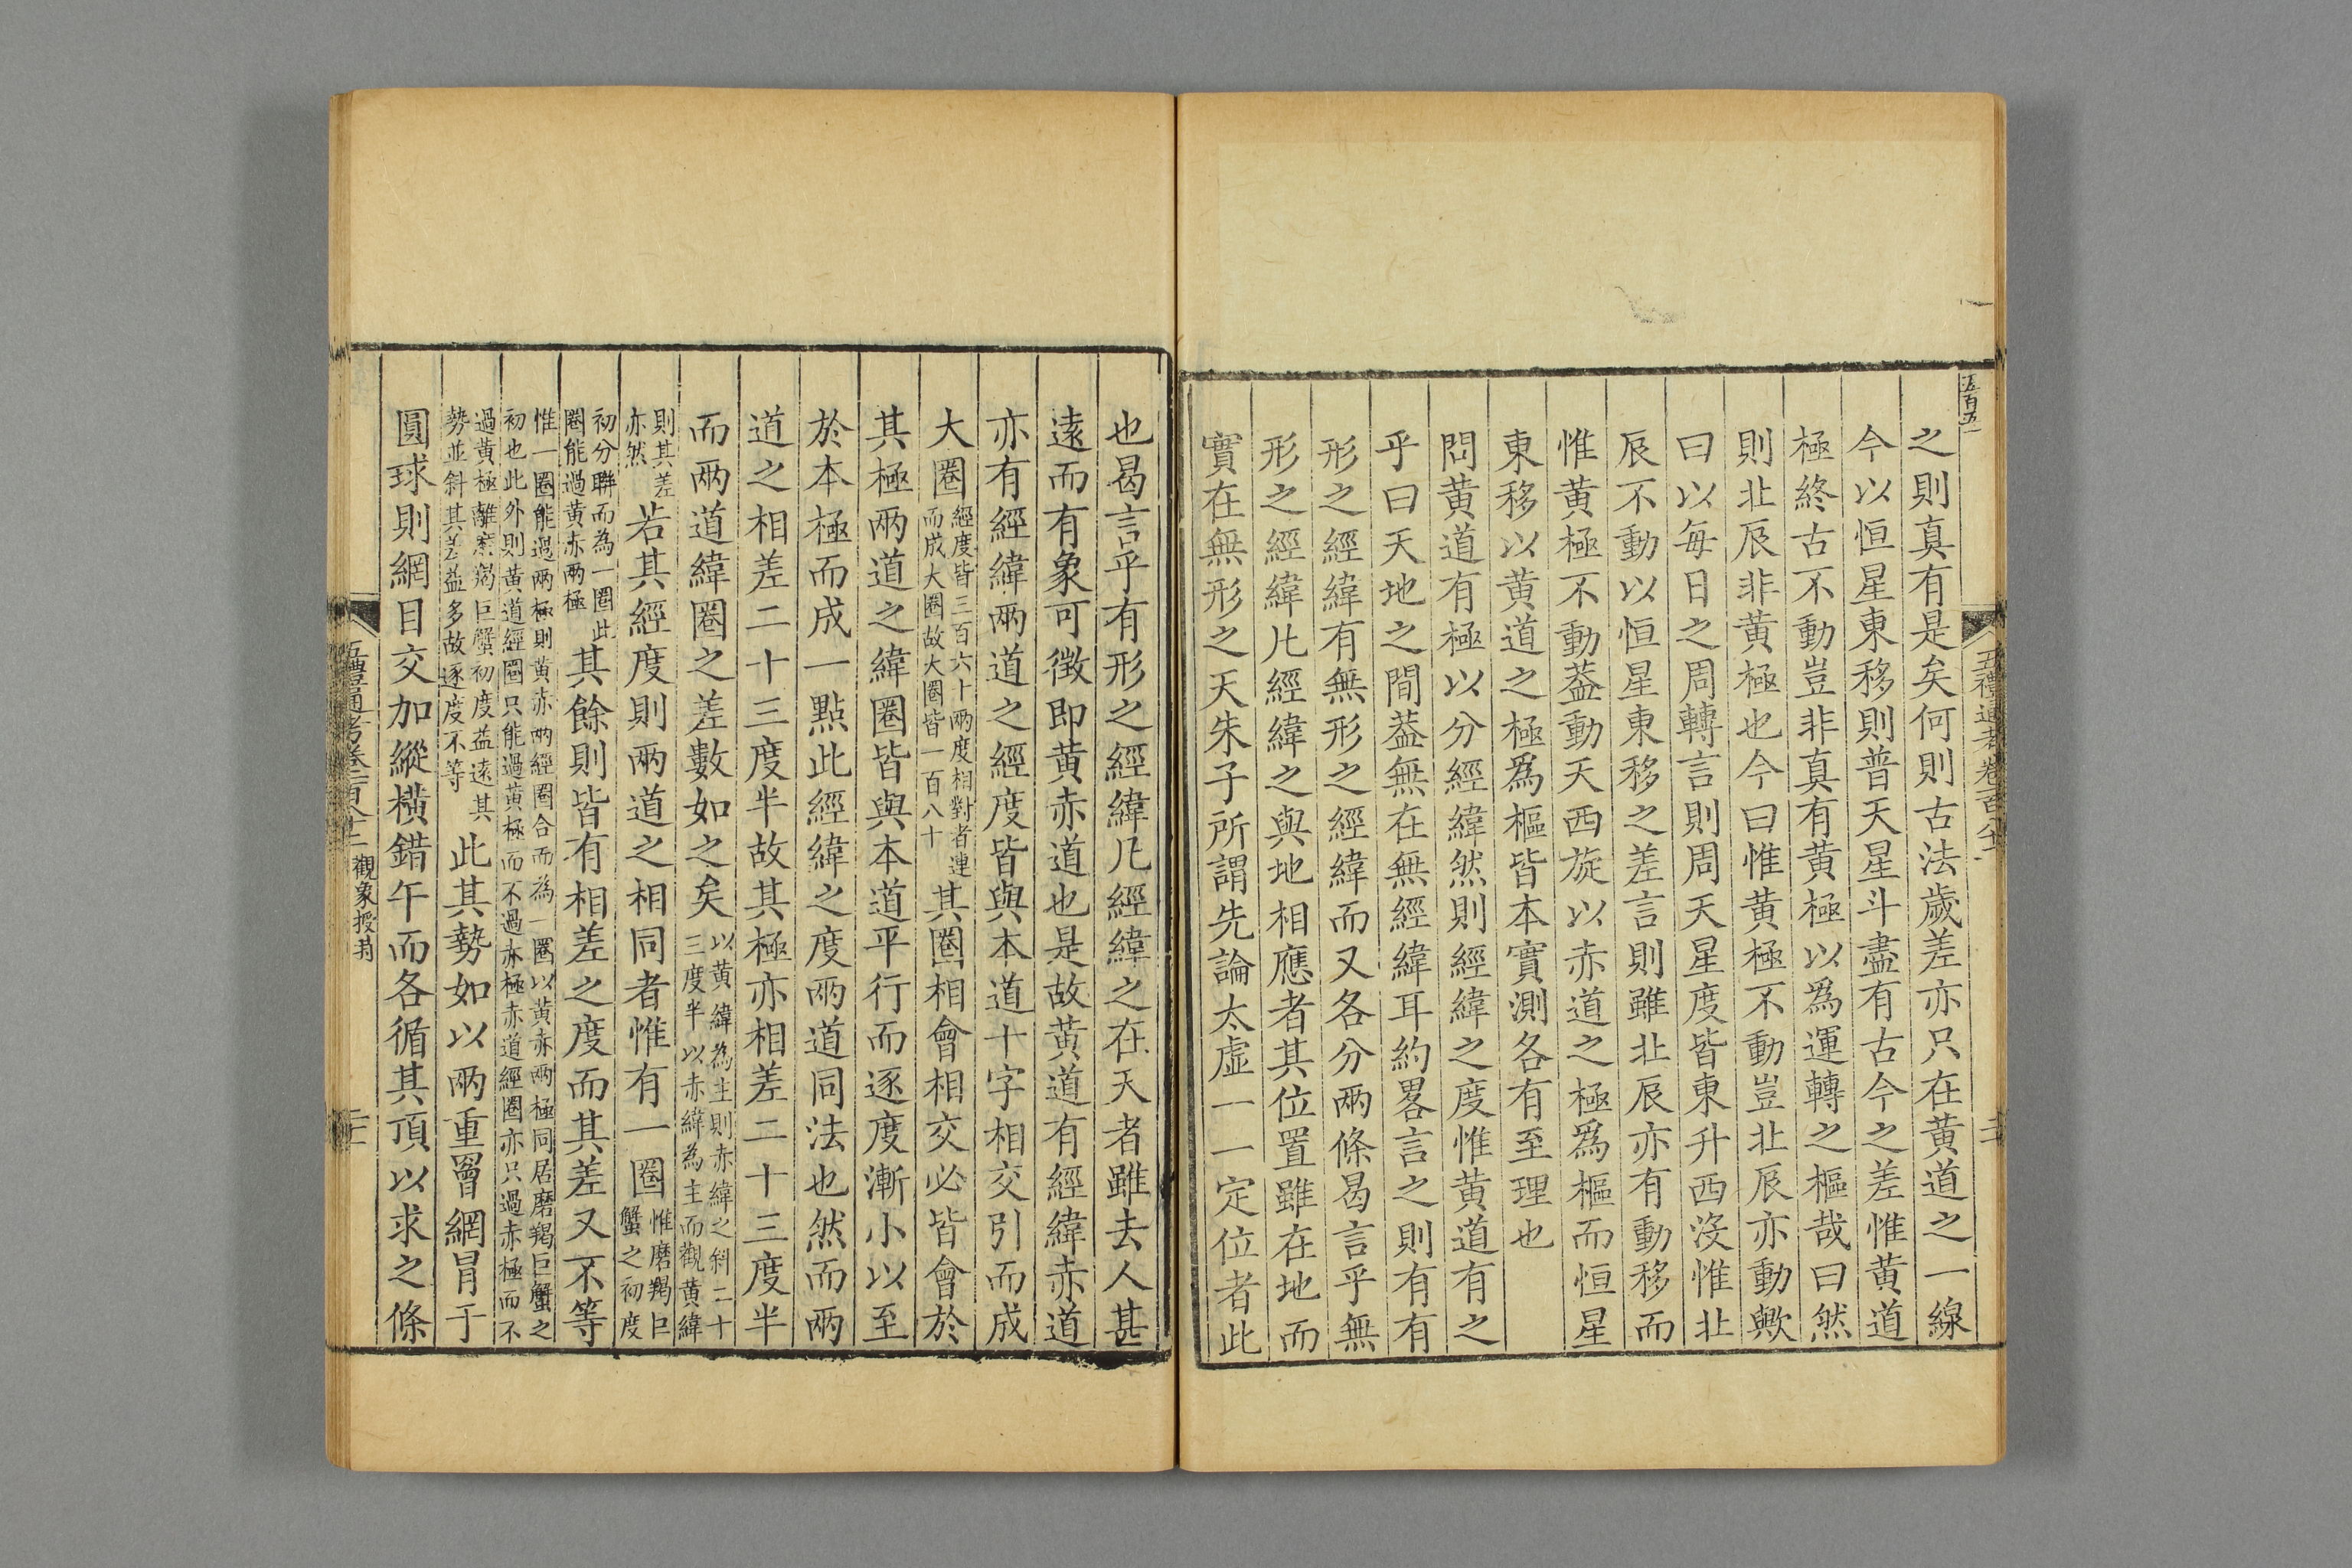 五百五一
五禮通考卷一百八十一
之則真有是矣何則古法歲差亦只在黄道之一線
今以恒星東移則普天星斗盡有古今之差惟黄道
極終古不動豈非真有黄極以為運轉之樞哉曰然
則北辰非黄極也今曰惟黄極不動豈北辰亦動歟
曰以每日之周轉言則周天星度皆東升西没惟北
辰不動以恒星東移之差言則雖北辰亦有動移而
惟黄極不動葢動天西旋以赤道之極為樞而恒星
東移以黄道之極為樞皆本實測各有至理也
問黄道有極以分經緯然則經緯之度惟黄道有之
乎曰天地之間葢無在無經緯耳約畧言之則有有
形之經緯有無形之經緯而又各分兩條曷言乎無
形之經緯凡經緯之與地相應者其位置雖在地而
實在無形之天朱子所謂先論太虚一一定位者此
也曷言乎有形之經緯凡經緯之在天者雖去人甚
遠而有象可徴即黄赤道也是故黄道有經緯赤道
亦有經緯兩道之經度皆與本道十字相交引而成
大圈經度皆三百六十兩度相對者連而成大圈故大圈皆一百八十其圈相會相交必皆會於
其極兩道之緯圈皆與本道平行而逐度漸小以至
於本極而成一點此經緯之度兩道同法也然而兩
道之相差二十三度半故其極亦相差二十三度半
而兩道緯圈之差數如之矣以黄緯為主則赤緯之斜二十三度半以赤緯為主而觀黄緯
則其差亦然若其經度則兩道之相同者惟有一圈惟磨羯巨蟹之初度
初分聯而為一圈此圈能過黄赤兩極其餘則皆有相差之度而其差又不等
惟一圈能過兩極則黄赤兩經圈合而為一圈以黄赤兩極同居磨羯巨蟹之初也此外則黄道經圈只能過黄極而不過赤極赤道經圈亦只過赤極而不
過黄極離磨羯巨蟹初度益遠其勢並斜其差益多故逐度不等此其勢如以兩重罾網冐于
圓球則網目交加縱横錯午而各循其頂以求之條
五禮通考卷一百八十一 觀象授時